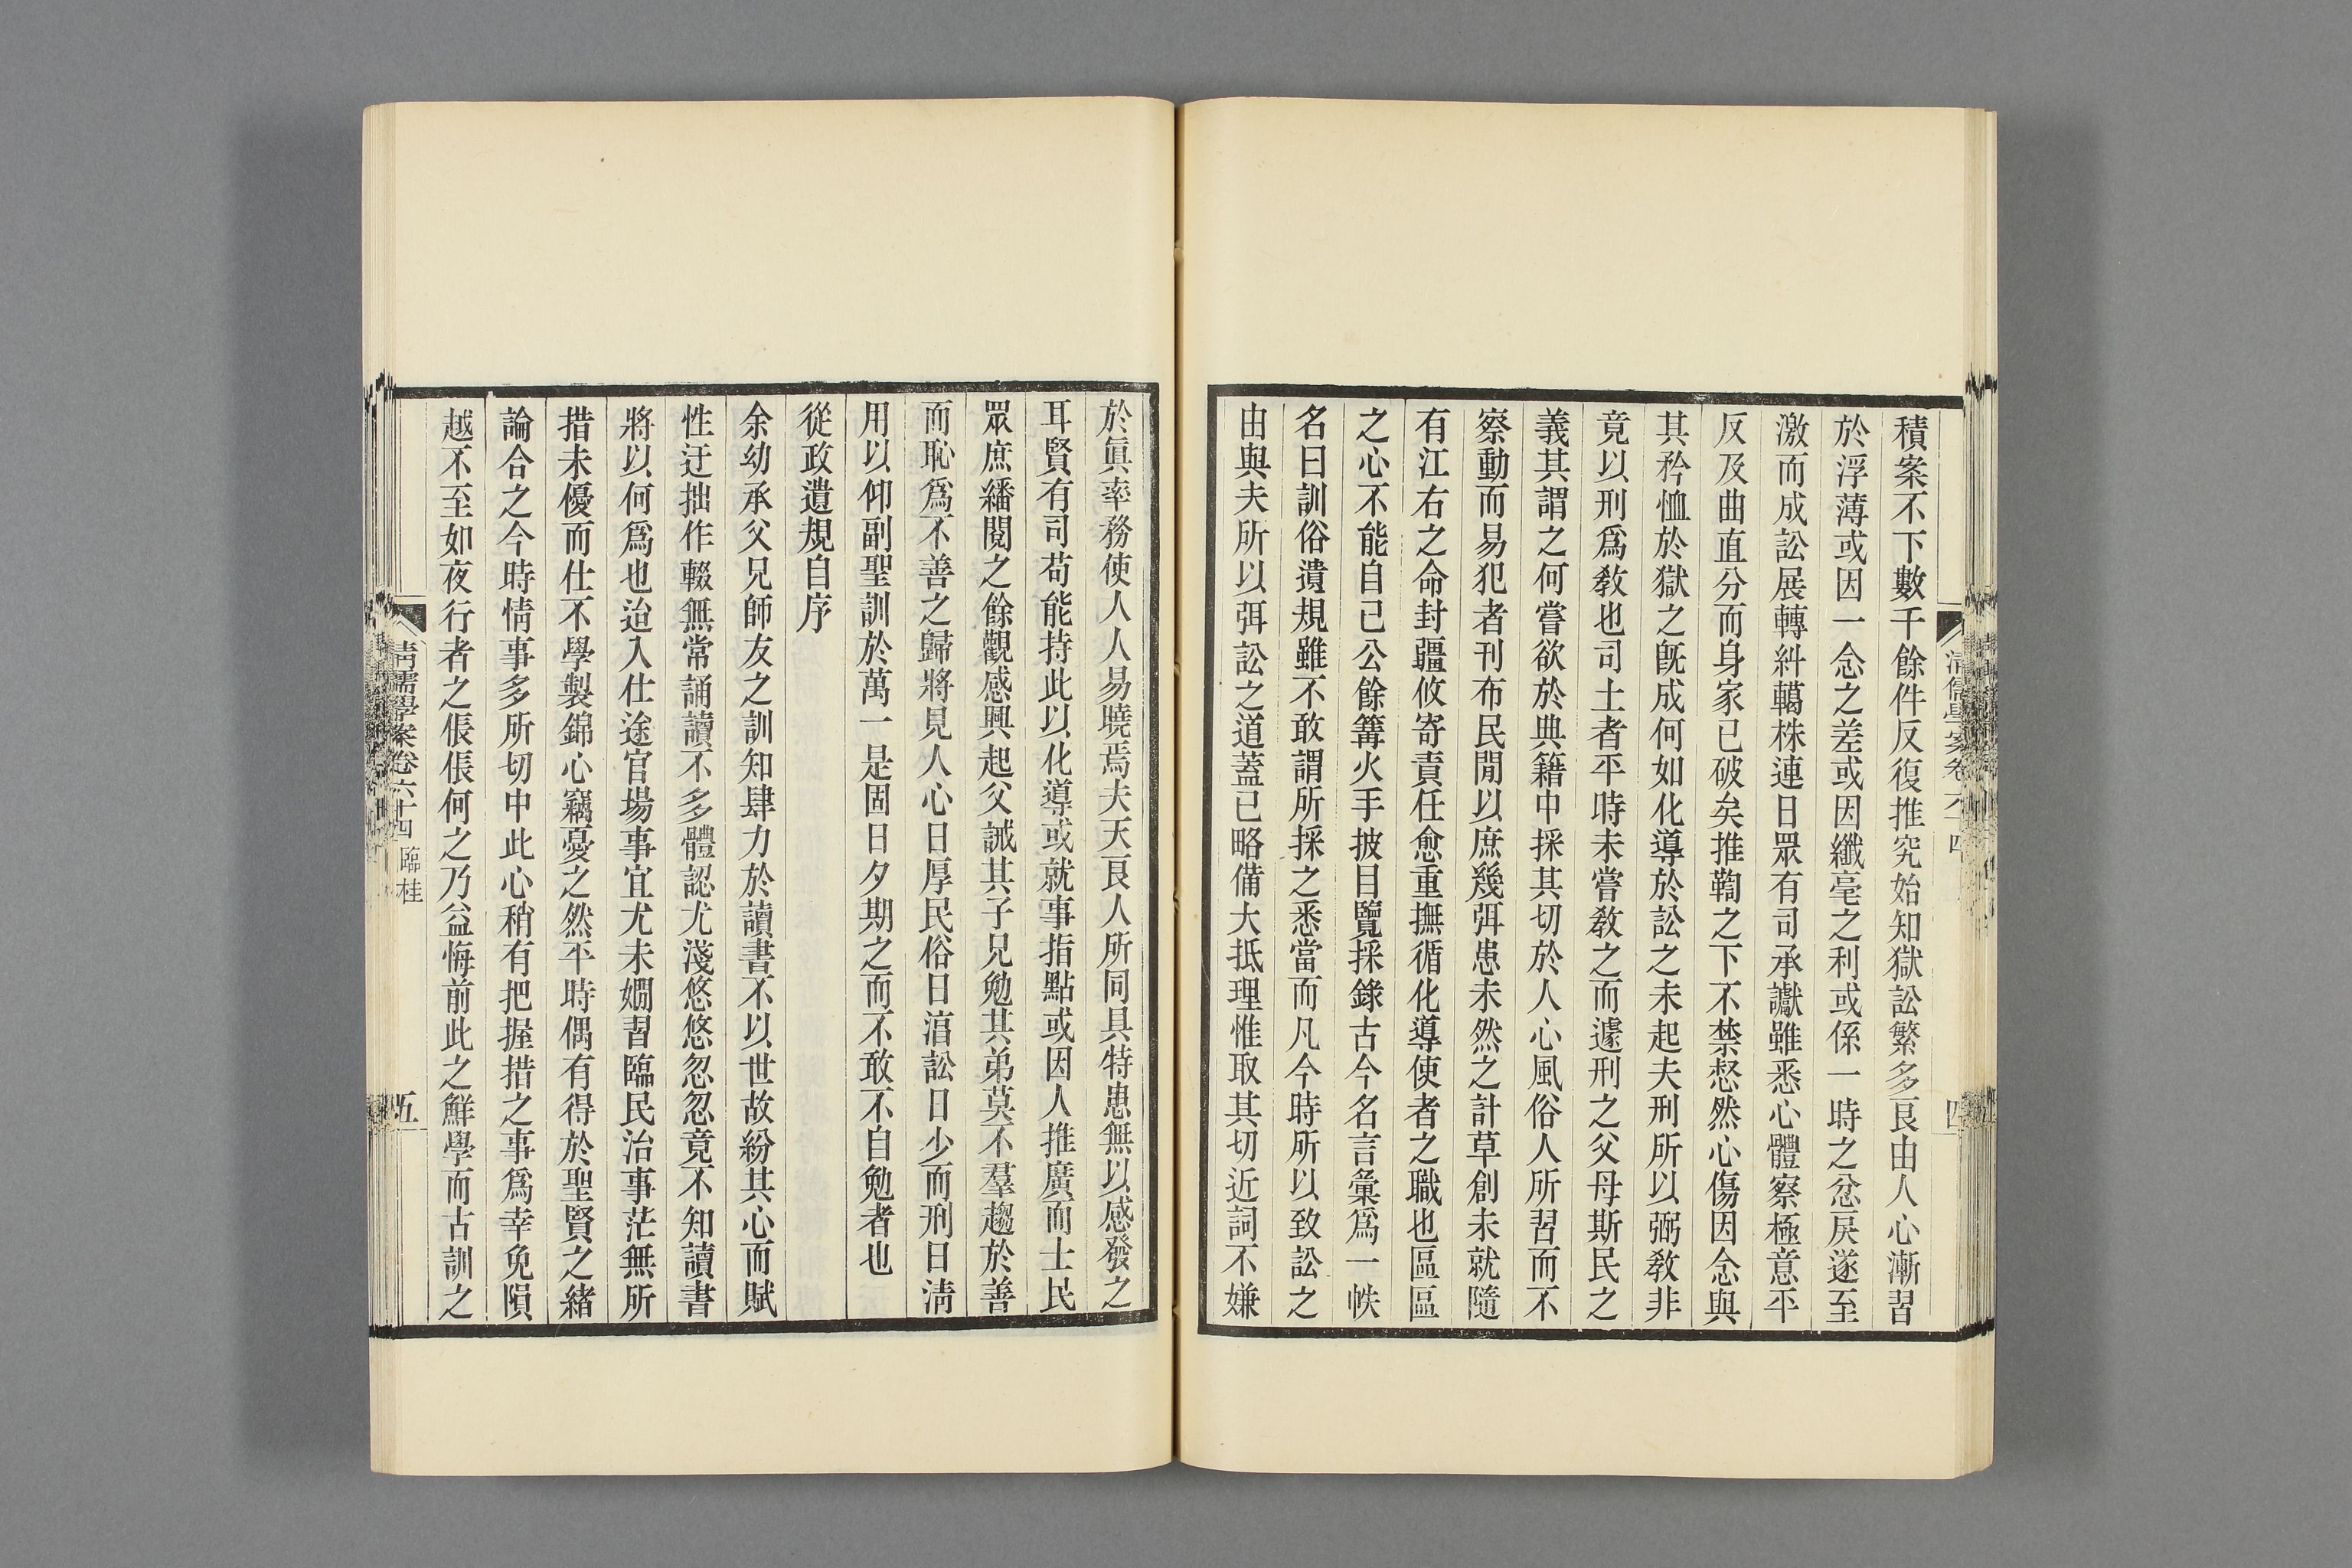 積案不下數千餘件反復推究始知獄訟繁多良由人心漸習
於浮薄或因一念之差或因纖毫之利或係一時之忿戾遂至
激而成訟展轉糾轕株連日眾有司承讞雖悉心體察極意平
反及曲直分而身家已破矣推鞫之下不禁愁然心傷因念與
其矜恤於獄之旣成何如化導於訟之未起夫刑所以弼敎非
竟以刑爲敎也司土者平時未嘗敎之而遽刑之父母斯民之
義其謂之何嘗欲於典籍中採其切於人心風俗人所習而不
察動而易犯者刊布民閒以庶幾弭患未然之計草創未就隨
有江右之命封疆攸寄責任愈重撫循化導使者之職也區區
之心不能自已公餘篝火手披目覽採錄古今名言彙爲一帙
名曰訓俗遺規雖不敢謂所採之悉當而凡今時所以致訟之
由與夫所以弭訟之道蓋已略備大抵理惟取其切近詞不嫌
於眞率務使人人易曉焉夫天良人所同具特患無以感發之
耳賢有司苟能持此以化導或就事指點或因人推廣而士民
眾庶繙閱之餘觀感興起父誡其子兄勉其弟莫不羣趨於善
而恥爲不善之歸將見人心日厚民俗日淯訟日少而刑日淸
用以仰副聖訓於萬一是固日夕期之而不敢不自勉者也
從政遺規自序
余幼承父兄師友之訓知肆力於讀書不以世故紛其心而賦
性迂拙作輟無常誦讀不多體認尤淺悠悠忽忽竟不知讀書
將以何爲也迨入仕途官場事宜尤未嫺習臨民治事茫無所
措未優而仕不學製錦心竊憂之然平時偶有得於聖賢之緒
論合之今時情事多所切中此心稍有把握措之事爲幸免隕
越不至如夜行者之倀倀何之乃益悔前此之鮮學而古訓之
清儒學案卷六十四 臨桂
五